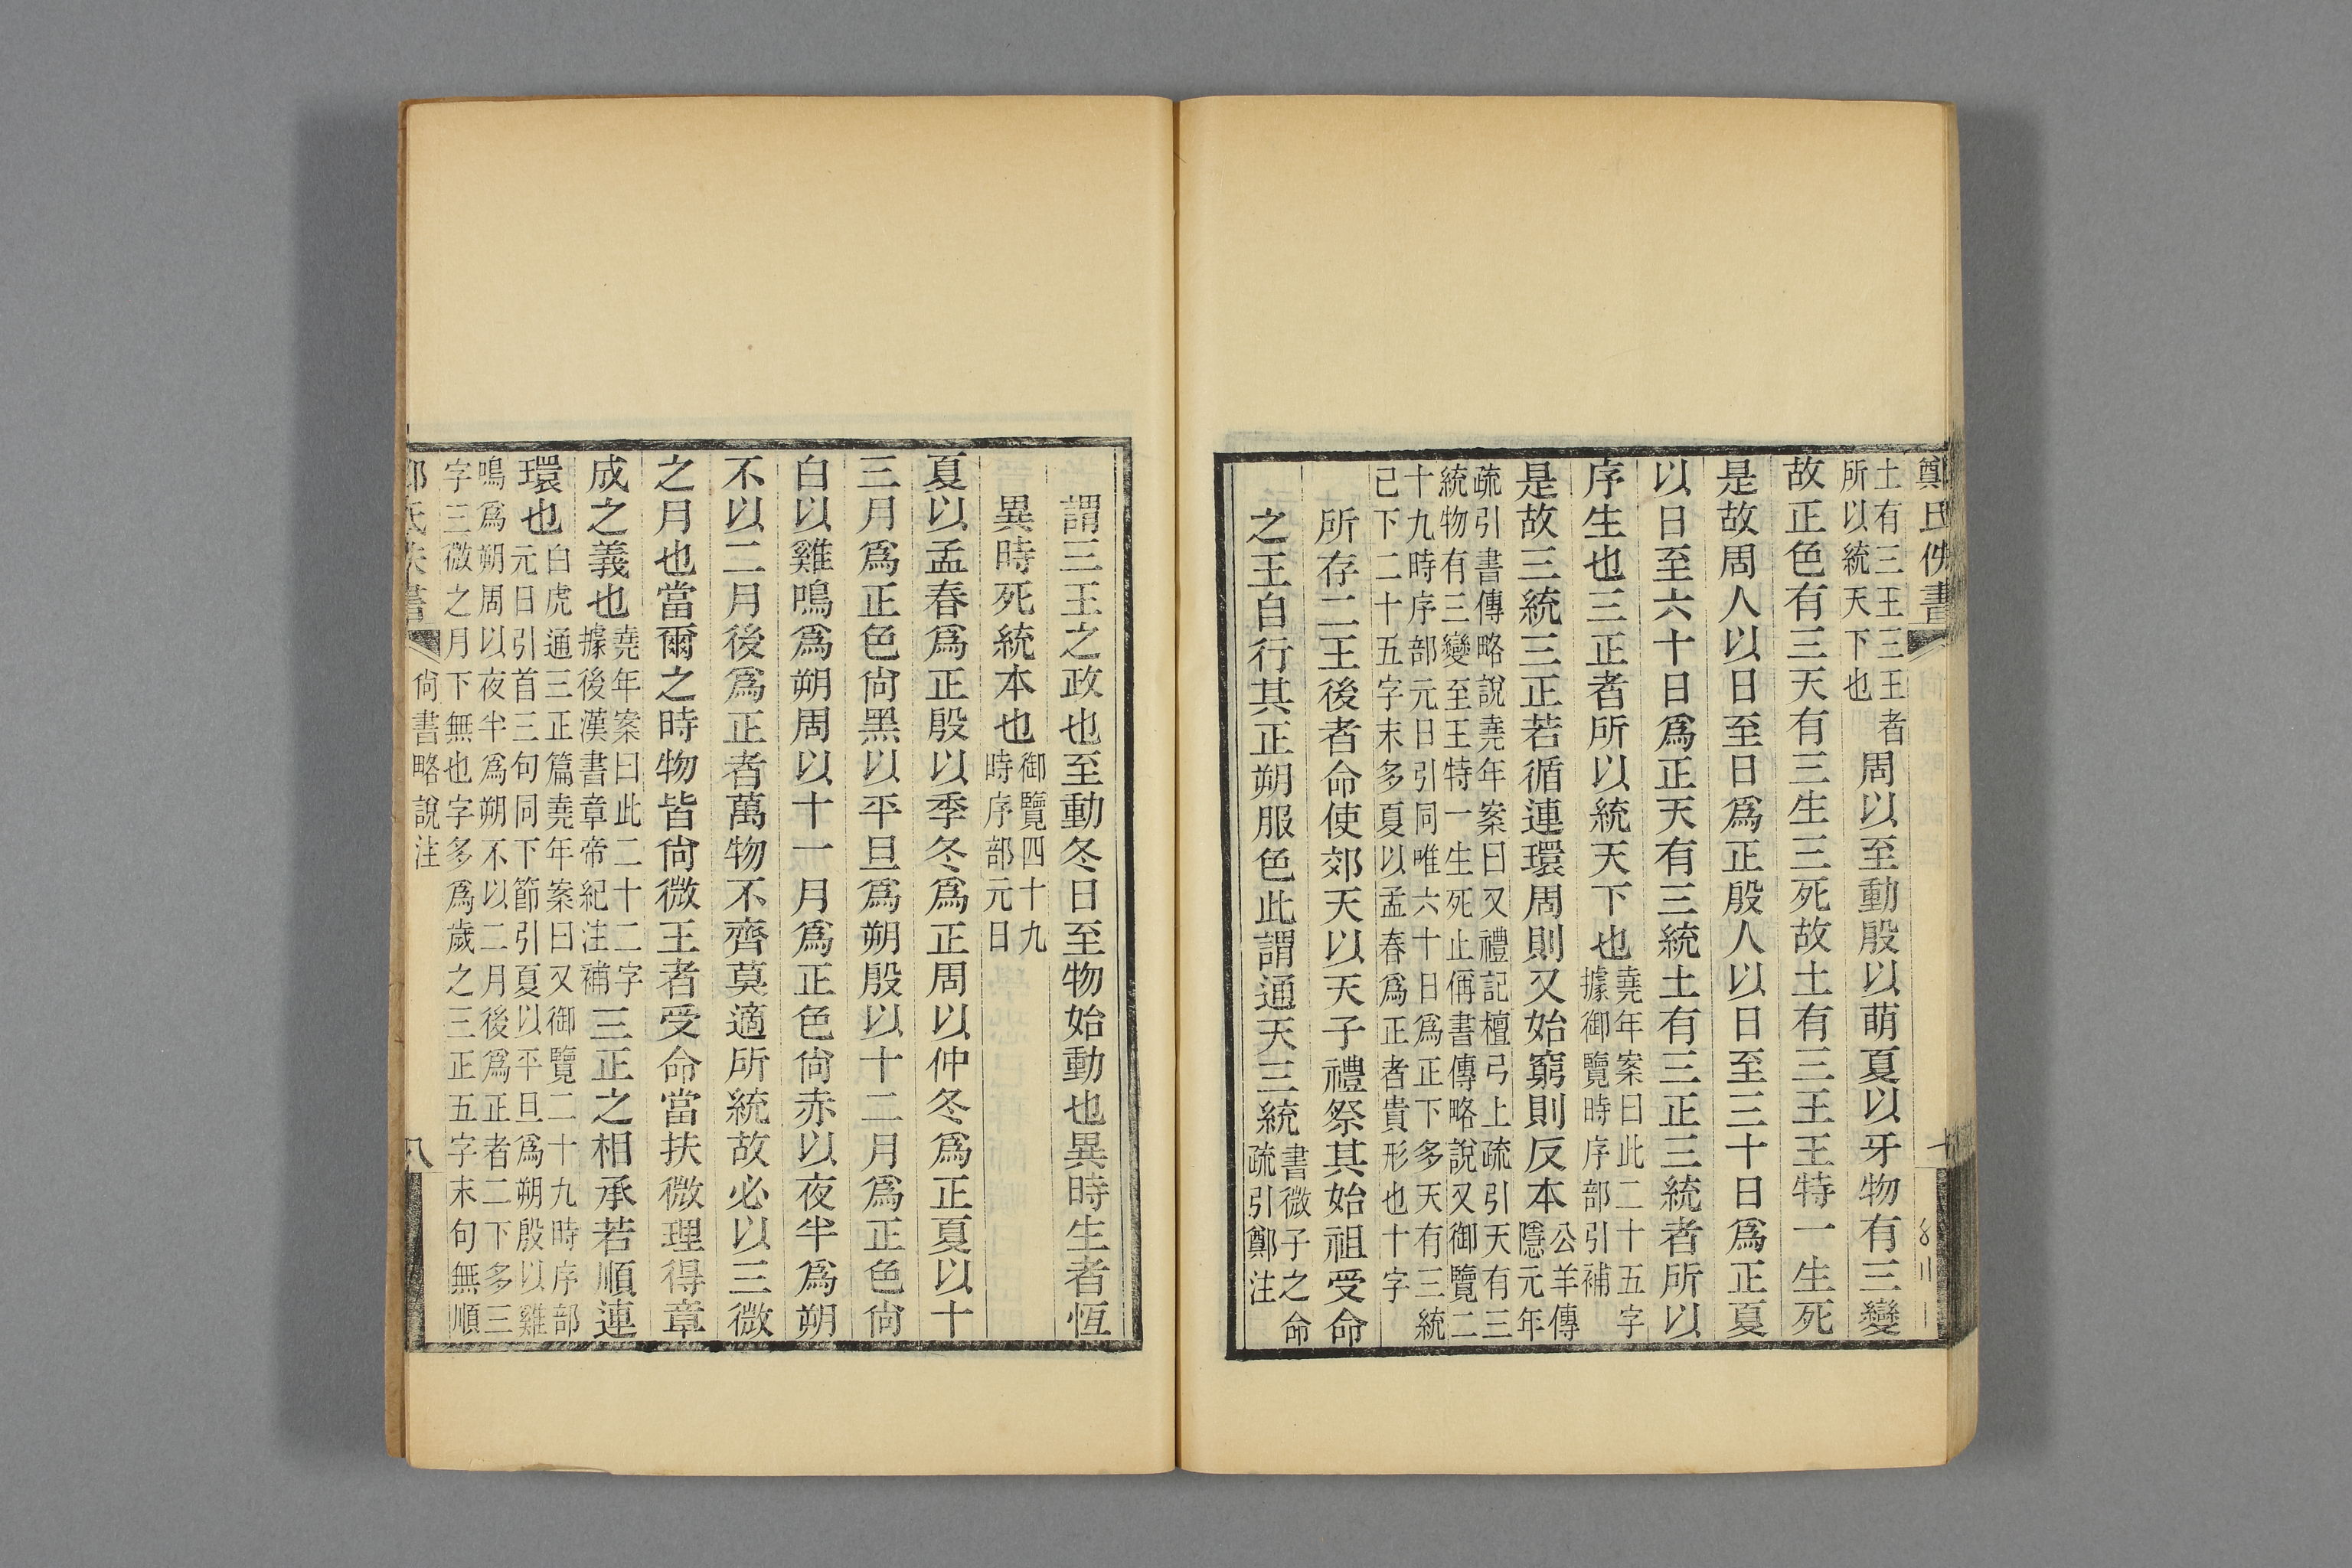 鄭氏佚書
土有三王三王者
所以統天下也
周以至動殷以萌夏以牙物有三變
故正色有三天有三生三死故土有三王王特一生死
是故周人以日至日爲正殷人以日至三十日爲正夏
以日至六十日爲正天有三統土有三正三統者所以
序生也三正者所以統天下也
堯年案曰此二十五字
據御覽時序部引補
是故三統三正若循連環周則又始窮則反本
公羊傳
隱元年
疏引書傳略說堯年案曰又禮記檀弓上疏引天有三
統物有三變至王特一生死止偁書傳略說又御覽二
十九時序部元日引同唯六十日爲正下多天有三統
已下二十五字末多夏以孟春爲正者貴形也十字
所存二王後者命使郊天以天子禮祭其始祖受命
之王自行其正朔服色此謂通天三統
書微子之命
疏引鄭注
謂三王之政也至動冬日至物始動也異時生者恆
異時死統本也
御覽四十九
時序部元日
夏以孟春爲正殷以季冬爲正周以仲冬爲正夏以十
三月爲正色尙黑以平旦爲朔殷以十二月爲正色尙
白以雞鳴爲朔周以十一月爲正色尙赤以夜半爲朔
不以二月後爲正者萬物不齊莫適所統故必以三微
之月也當爾之時物皆尙微王者受命當扶微理得章
成之義也
堯年案曰此二十二字
據後漢書章帝紀注補
三正之相承若順連
環也
白虎通三正篇堯年案曰又御覽二十九時序部
元日引首三句同下節引夏以平旦爲朔殷以雞
鳴爲朔周以夜半爲朔不以二月後爲正者二下多三
字三微之月下無也字多爲歲之三正五字末句無順
尙書略說注
八